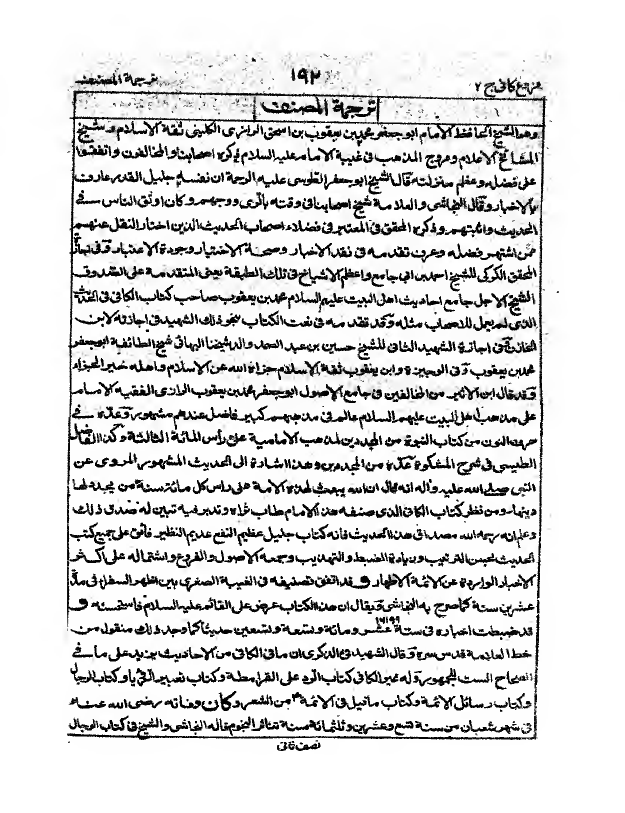 فروع کافی ج ۲ ۱۹۲ ترجمة المصنف
ترجمة المصنف
وهو الشیخ الحافظ الامام ابو جعفر محمد بن یعقوب بن اسحق الرازی الکلینی ثقة الاسلام و شیخ
المشائخ الاعلام و مروج المذهب فی غیبة الامام علیه السلام ذکره اصحابنا والمخالفون واتفقوا
علی فضله وعظم منزلته قال الشیخ ابو جعفر الطوسی علیه الرحمة انه ثقة جلیل القدر عارف
بالاخبار وقال النجاشی والعلامة شیخ اصحابنا فی وقته بالری ووجههم وکان اوثق الناس فی
الحدیث واثبتهم وذکره المحقق فی المعتبر فی فضلاء اصحاب الحدیث الذین اختار النقل عنهم
ممن اشتهر فضله وعرف تقدمه فی نقد الاخبار وصحة الاختیار وجودة الاعتبار وفی اجازة
المحقق الکرکی للشیخ احمد بن ابی جامع واعظم الاشیاخ فی تلك الطبقة یعنی المتقدمة علی الصدوق
الشیخ الاجل جامع احادیث اهل البیت علیهم السلام محمد بن یعقوب صاحب کتاب الکافی فی الحدیث
الذی لم یعمل للاصحاب مثله وقد تقدمه فی نعت الکتاب بنحو ذلك الشهید فی اجازته لابن
الخازن وفی اجازة الشهید الثانی للشیخ حسین بن عبد الصمد والد شیخنا البهائی شیخ الطائفة ابو جعفر
محمد بن یعقوب وفی الوجیزة وابن یعقوب ثقة الاسلام جزاه الله عن الاسلام واهله خیر الجزاء
وقد قال ابن الاثیر من المخالفین فی جامع الاصول ابو جعفر محمد بن یعقوب الرازی الفقیه الامام
علی مذهب اهل البیت علیهم السلام عالم فی مذهبهم کبیر فاضل عندهم مشهور وعده فی
حرف النون من کتاب النبوة من المجددین لمذهب الامامیة علی رأس المائة الثالثة وکذا الفاضل
الطیبی فی شرح المشکوة عده من المجددین وهذا اشارة الی الحدیث المشهور المروی عن
النبی صلی الله علیه و آله انه قال ان الله یبعث لهذه الامة علی رأس کل مائة سنة من یجدد لها
دینها ومن نظر کتاب الکافی الذی صنفه هذا الامام طاب ثراه وتدبر فیه تبین له صدق ذلك
وعلم انه رحمه الله مصداق هذا الحدیث فانه کتاب جلیل عظیم النفع عدیم النظیر فائق علی جمیع کتب
الحدیث بحسن الترتیب وزیادة الضبط والتهذیب وجمعه الاصول والفروع واشتماله علی اکثر
الاخبار الواردة عن الائمة الاطهار وقد اتفق تصنیفه فی الغیبة الصغری بین اظهر السفراء فی مدة
عشرین سنة کما صرح به النجاشی ویقال ان هذا الکتاب عرض علی القائم علیه السلام فاستحسنه و
قد ضبطت اخباره فی ستة عشر ومائة وتسعة وتسعین حدیثا کما وجد ذلك منقول من
۱۶۱۹۹
خط العلامة قدس سره وقال الشهید فی الذکری ان ما فی الکافی من الاحادیث یزید علی ما فی
الصحاح الست للجمهور وله غیر الکافی کتاب الرد علی القرامطة وکتاب تعبیر الرؤیا وکتاب الرجال
وکتاب رسائل الائمة وکتاب ما قیل فی الائمة من الشعر وکان وفاته رضی الله عنه
فی شهر شعبان من سنة تسع وعشرین وثلثمائة سنة تناثر النجوم قاله النجاشی والشیخ فی کتاب الرجال
نصف ثانی